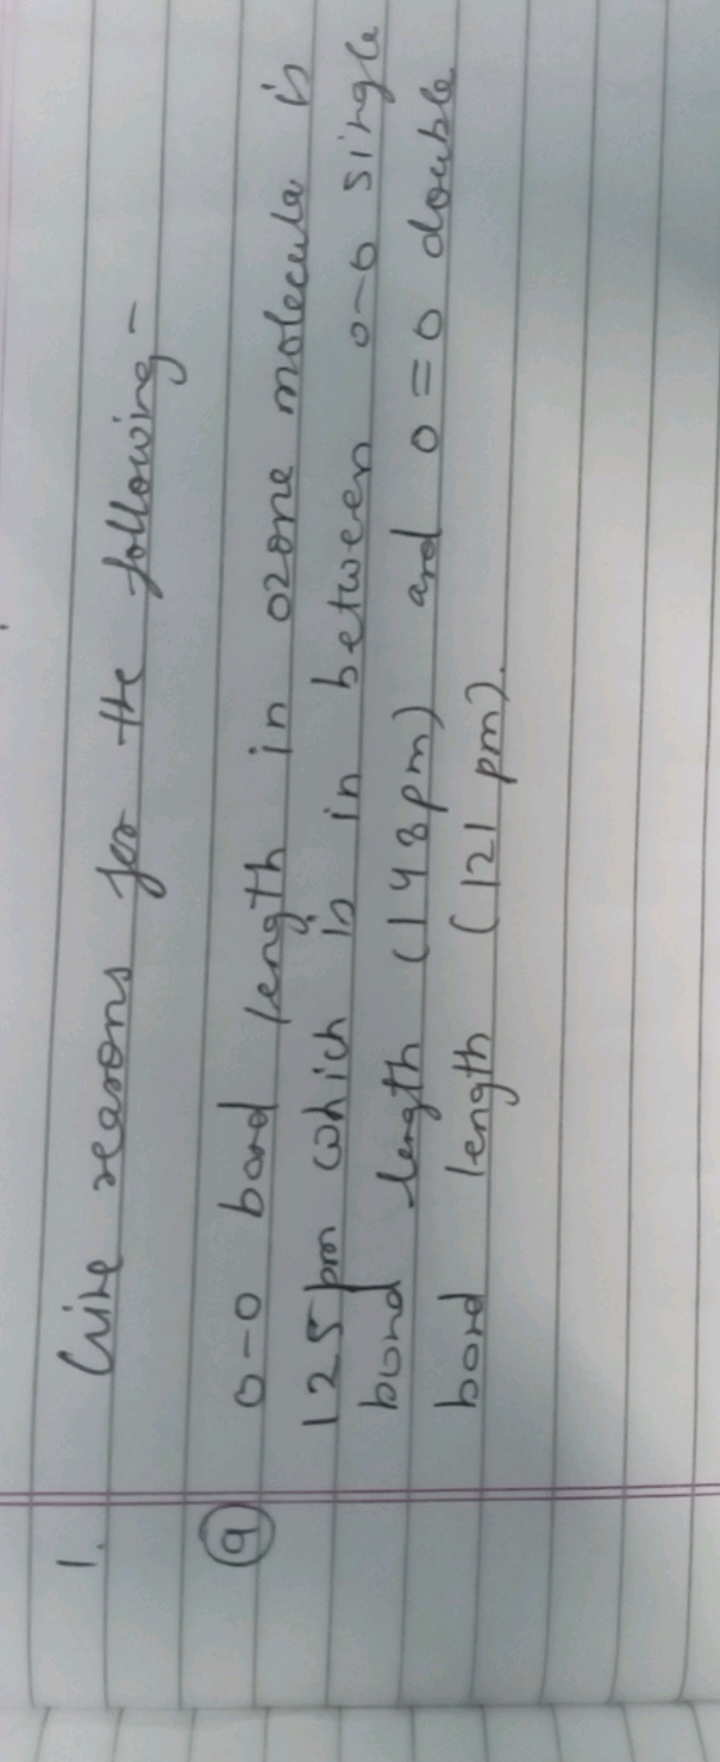 1. Give reasons for the following -
(a) O-O bond length in ozone molecule is
125pm which is in between O-O single
bond length (148pm) and O=O double
bond length (121 pm).